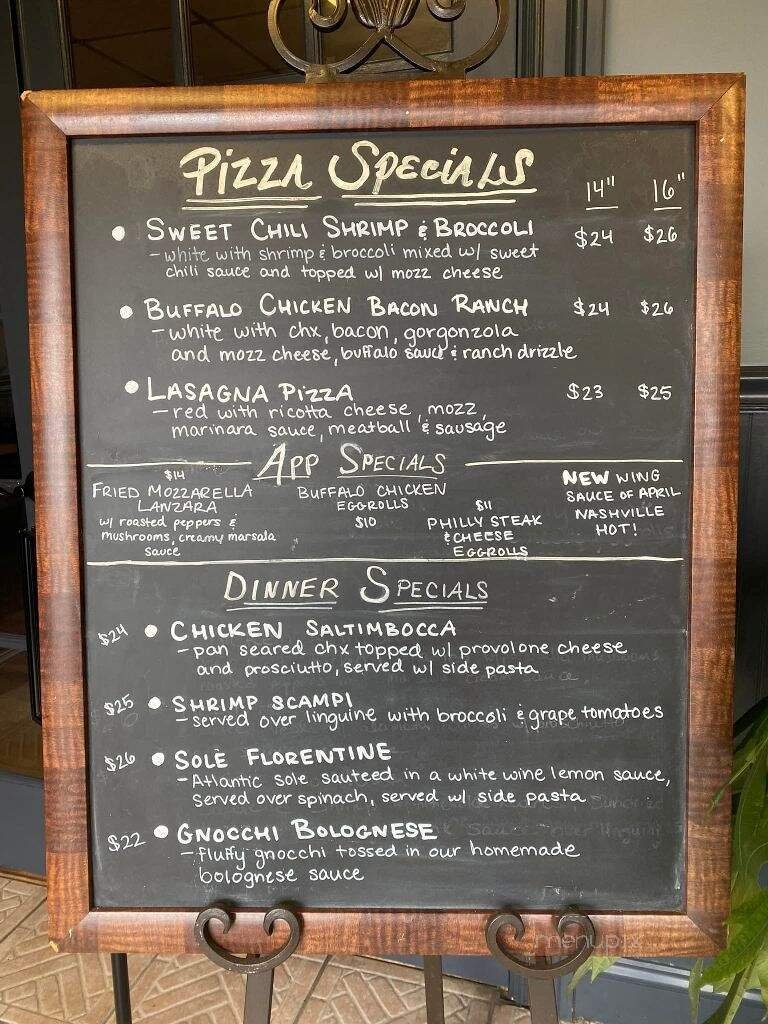 Pizza Specials
14" 16"
• Sweet Chili Shrimp & Broccoli $24 $26
- white with shrimp & broccoli mixed w/ sweet
chili sauce and topped w/ mozz cheese
• Buffalo Chicken Bacon Ranch $24 $26
- white with chx, bacon, gorgonzola
and mozz cheese, buffalo sauce & ranch drizzle
• Lasagna Pizza $23 $25
- red with ricotta cheese, mozz,
marinara sauce, meatball & sausage
App Specials
$14
Fried Mozzarella
Lanzara
w/ roasted peppers &
mushrooms, creamy marsala
sauce
Buffalo Chicken
Eggrolls
$10
$11
Philly Steak
& Cheese
Eggrolls
NEW Wing
Sauce of April
Nashville
Hot!
Dinner Specials
$24 • Chicken Saltimbocca
- pan seared chx topped w/ provolone cheese
and prosciutto, served w/ side pasta
$25 • Shrimp Scampi
- served over linguine with broccoli & grape tomatoes
$26 • Sole Florentine
- Atlantic sole sauteed in a white wine lemon sauce,
served over spinach, served w/ side pasta
$22 • Gnocchi Bolognese
- fluffy gnocchi tossed in our homemade
bolognese sauce